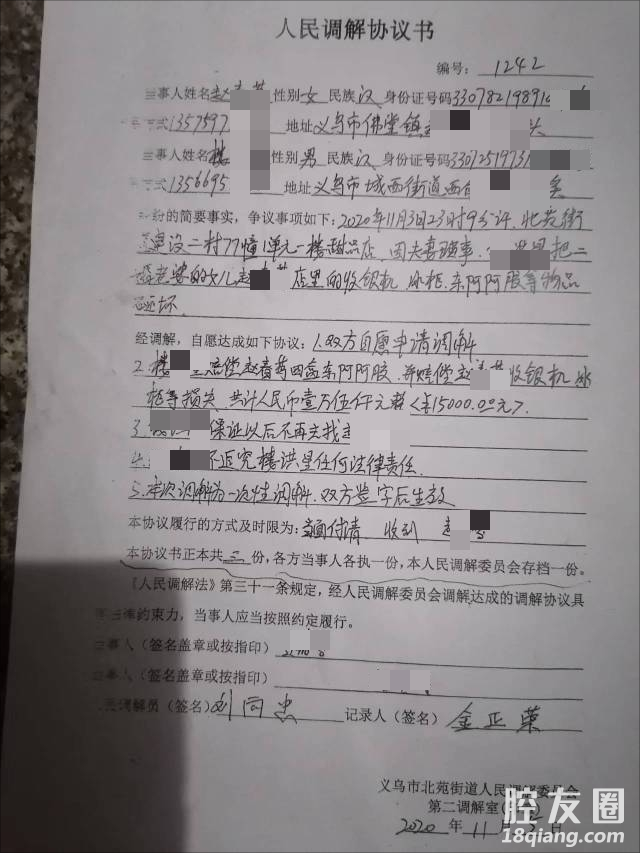 人民调解协议书
编号: 1242
当事人姓名赵 性别女 民族汉 身份证号码33078219891
式1357597 地址义乌市佛堂镇
当事人姓名楼 性别男 民族汉 身份证号码3307251973
式1356695 地址义乌市城西街道西
纠纷的简要事实，争议事项如下：2020年11月3日23时9分许，北苑街
建设二村77幢1单元一楼甜品店，因夫妻琐事， 把二
婚老婆的女儿赵 店里的收银机、冰柜、东阿阿胶等物品
砸坏
经调解，自愿达成如下协议：1.双方自愿申请调解
2.楼 赔偿赵 东阿阿胶，并赔偿赵 收银机 冰
柜等损失，共计人民币壹万伍仟元整〈¥15000.00元〉
3. 保证以后不再去找
4. 不追究楼洪星任何法律责任.
5.本次调解为一次性调解.双方签字后生效
本协议履行的方式及时限为：当面付清 收到
本协议书正本共三份，各方当事人各执一份，本人民调解委员会存档一份。
《人民调解法》第三十一条规定，经人民调解委员会调解达成的调解协议具
律约束力，当事人应当按照约定履行。
当事人（签名盖章或按指印）
当事人（签名盖章或按指印）
民调解员（签名）刘同忠 记录人（签名）金正荣
义乌市北苑街道人民调解委员会
第二调解室
2020 年 11 月 日
腔友圈
18qiang.com